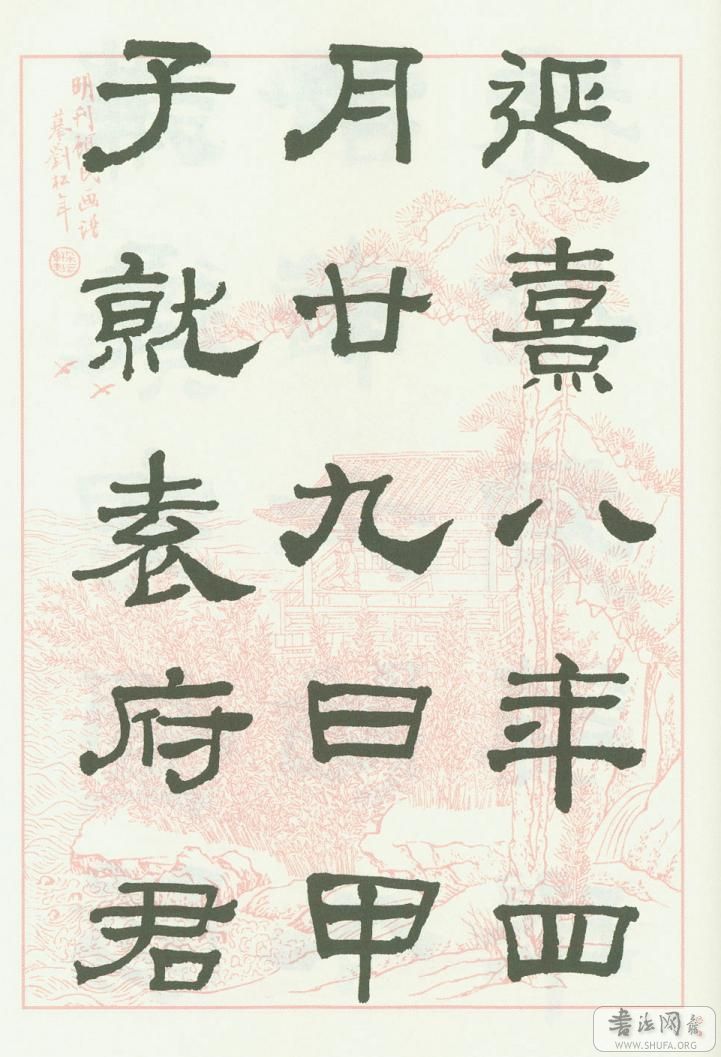 延熹八年四
月廿九日甲
子就袁府君
明刊顧氏画譜
摹劉松年
書法网
WWW.SHUFA.ORG